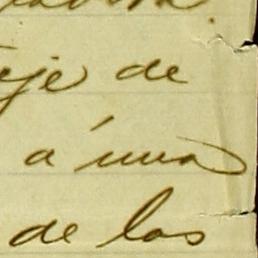 eje de
a una
de las